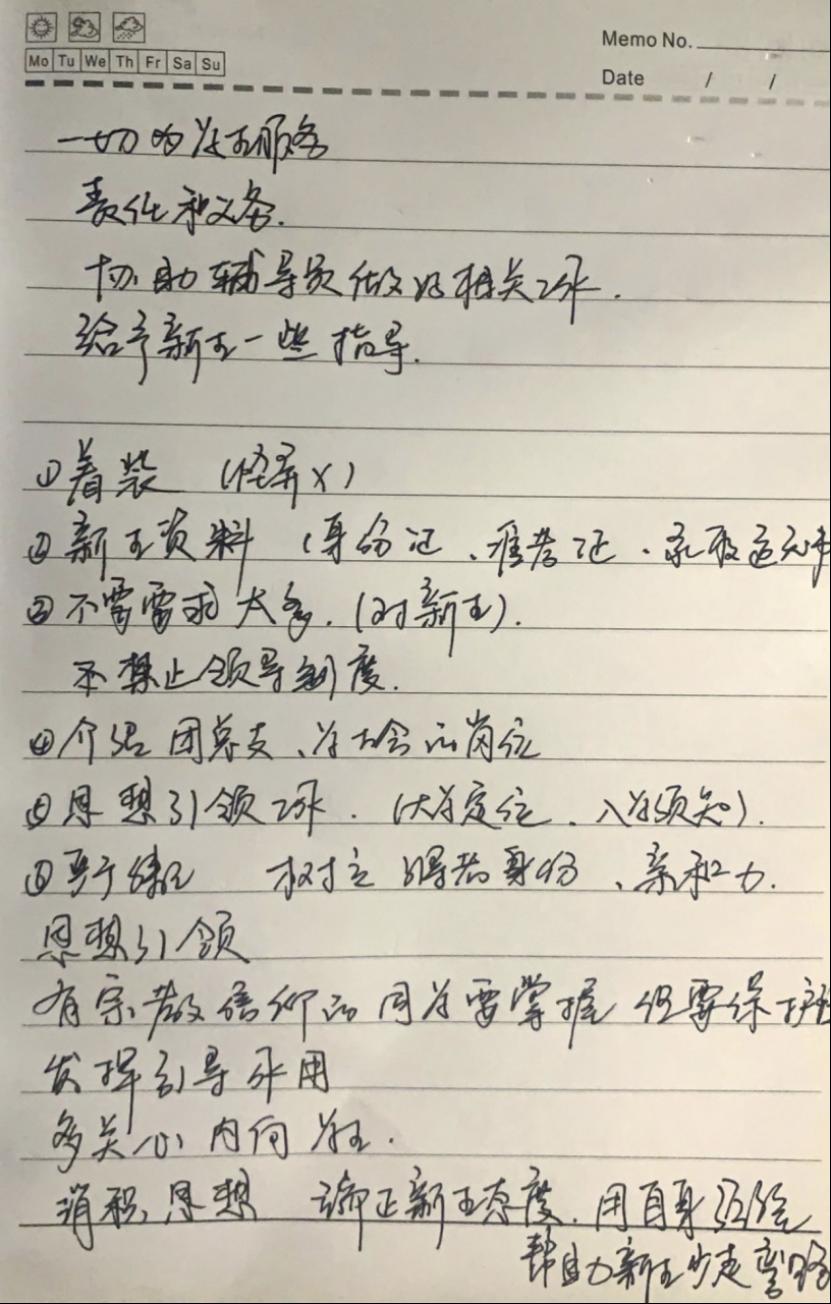 Memo No.
Mo Tu We Th Fr Sa Su
Date / /
一切为学生服务
责任和义务.
协助辅导员做好相关工作.
给予新生一些指导.
①着装 (怪异×)
②新生资料 (身份证、准考证、录取通知书
③不需要求太多.(对新生).
不禁止领导制度.
④介绍团总支、学生会的岗位
⑤思想引领工作. (大学定位、入学须知).
⑥ 树立 身份、亲和力.
思想引领
有宗教信仰的同学要掌握 但要保护
发挥引导作用
多关心内向学生.
消积思想 端正新生态度.用自身经验
帮助新生少走弯路